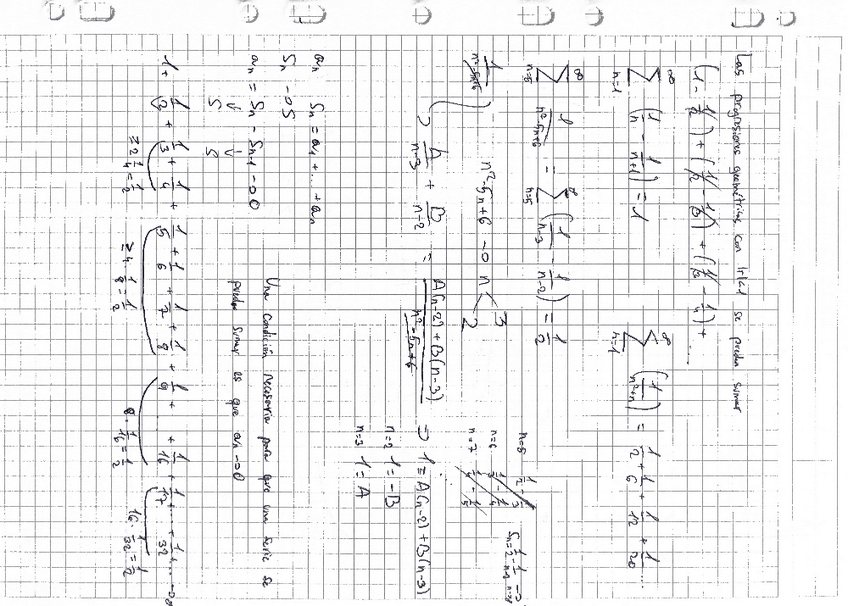 Las progresiones geométricas con |r|<1 se pueden sumar
(1 - 1/2) + (1/2 - 1/3) + (1/3 - 1/4) + ...
∑_{n=1}^∞ (1/n - 1/(n+1)) = 1
∑_{n=1}^∞ (1/(n²+n)) = 1/2 + 1/6 + 1/12 + 1/20 ...
∑_{n=5}^∞ 1/(n²-5n+6) = ∑_{n=5}^∞ (1/(n-3) - 1/(n-2)) = 1/2
n=5 1/2 - 1/3
n=6 1/3 - 1/4
n=7 1/4 - 1/5
1/(n²-5n+6)
n²-5n+6 → n < 3 2
A/(n-3) + B/(n-2) = (A(n-2)+B(n-3))/(n²-5n+6) ⇒ 1 = A(n-2)+B(n-3)
n=2 1=-B
n=3 1=A
a_n S_n = a_1 + ... + a_n
S_n → S
a_n = S_n - S_{n-1} → 0
↓ ↓
S S
Una condición necesaria para que una serie se
pueda sumar es que a_n → 0
1 + 1/2 + 1/3 + 1/4 + 1/5 + 1/6 + 1/7 + 1/8 + 1/9 + + 1/16 + 1/17 + ... + 1/32 ... → ∞
≥ 2·1/4 = 1/2
≥ 4·1/8 = 1/2
8·1/16 = 1/2
16·1/32 = 1/2